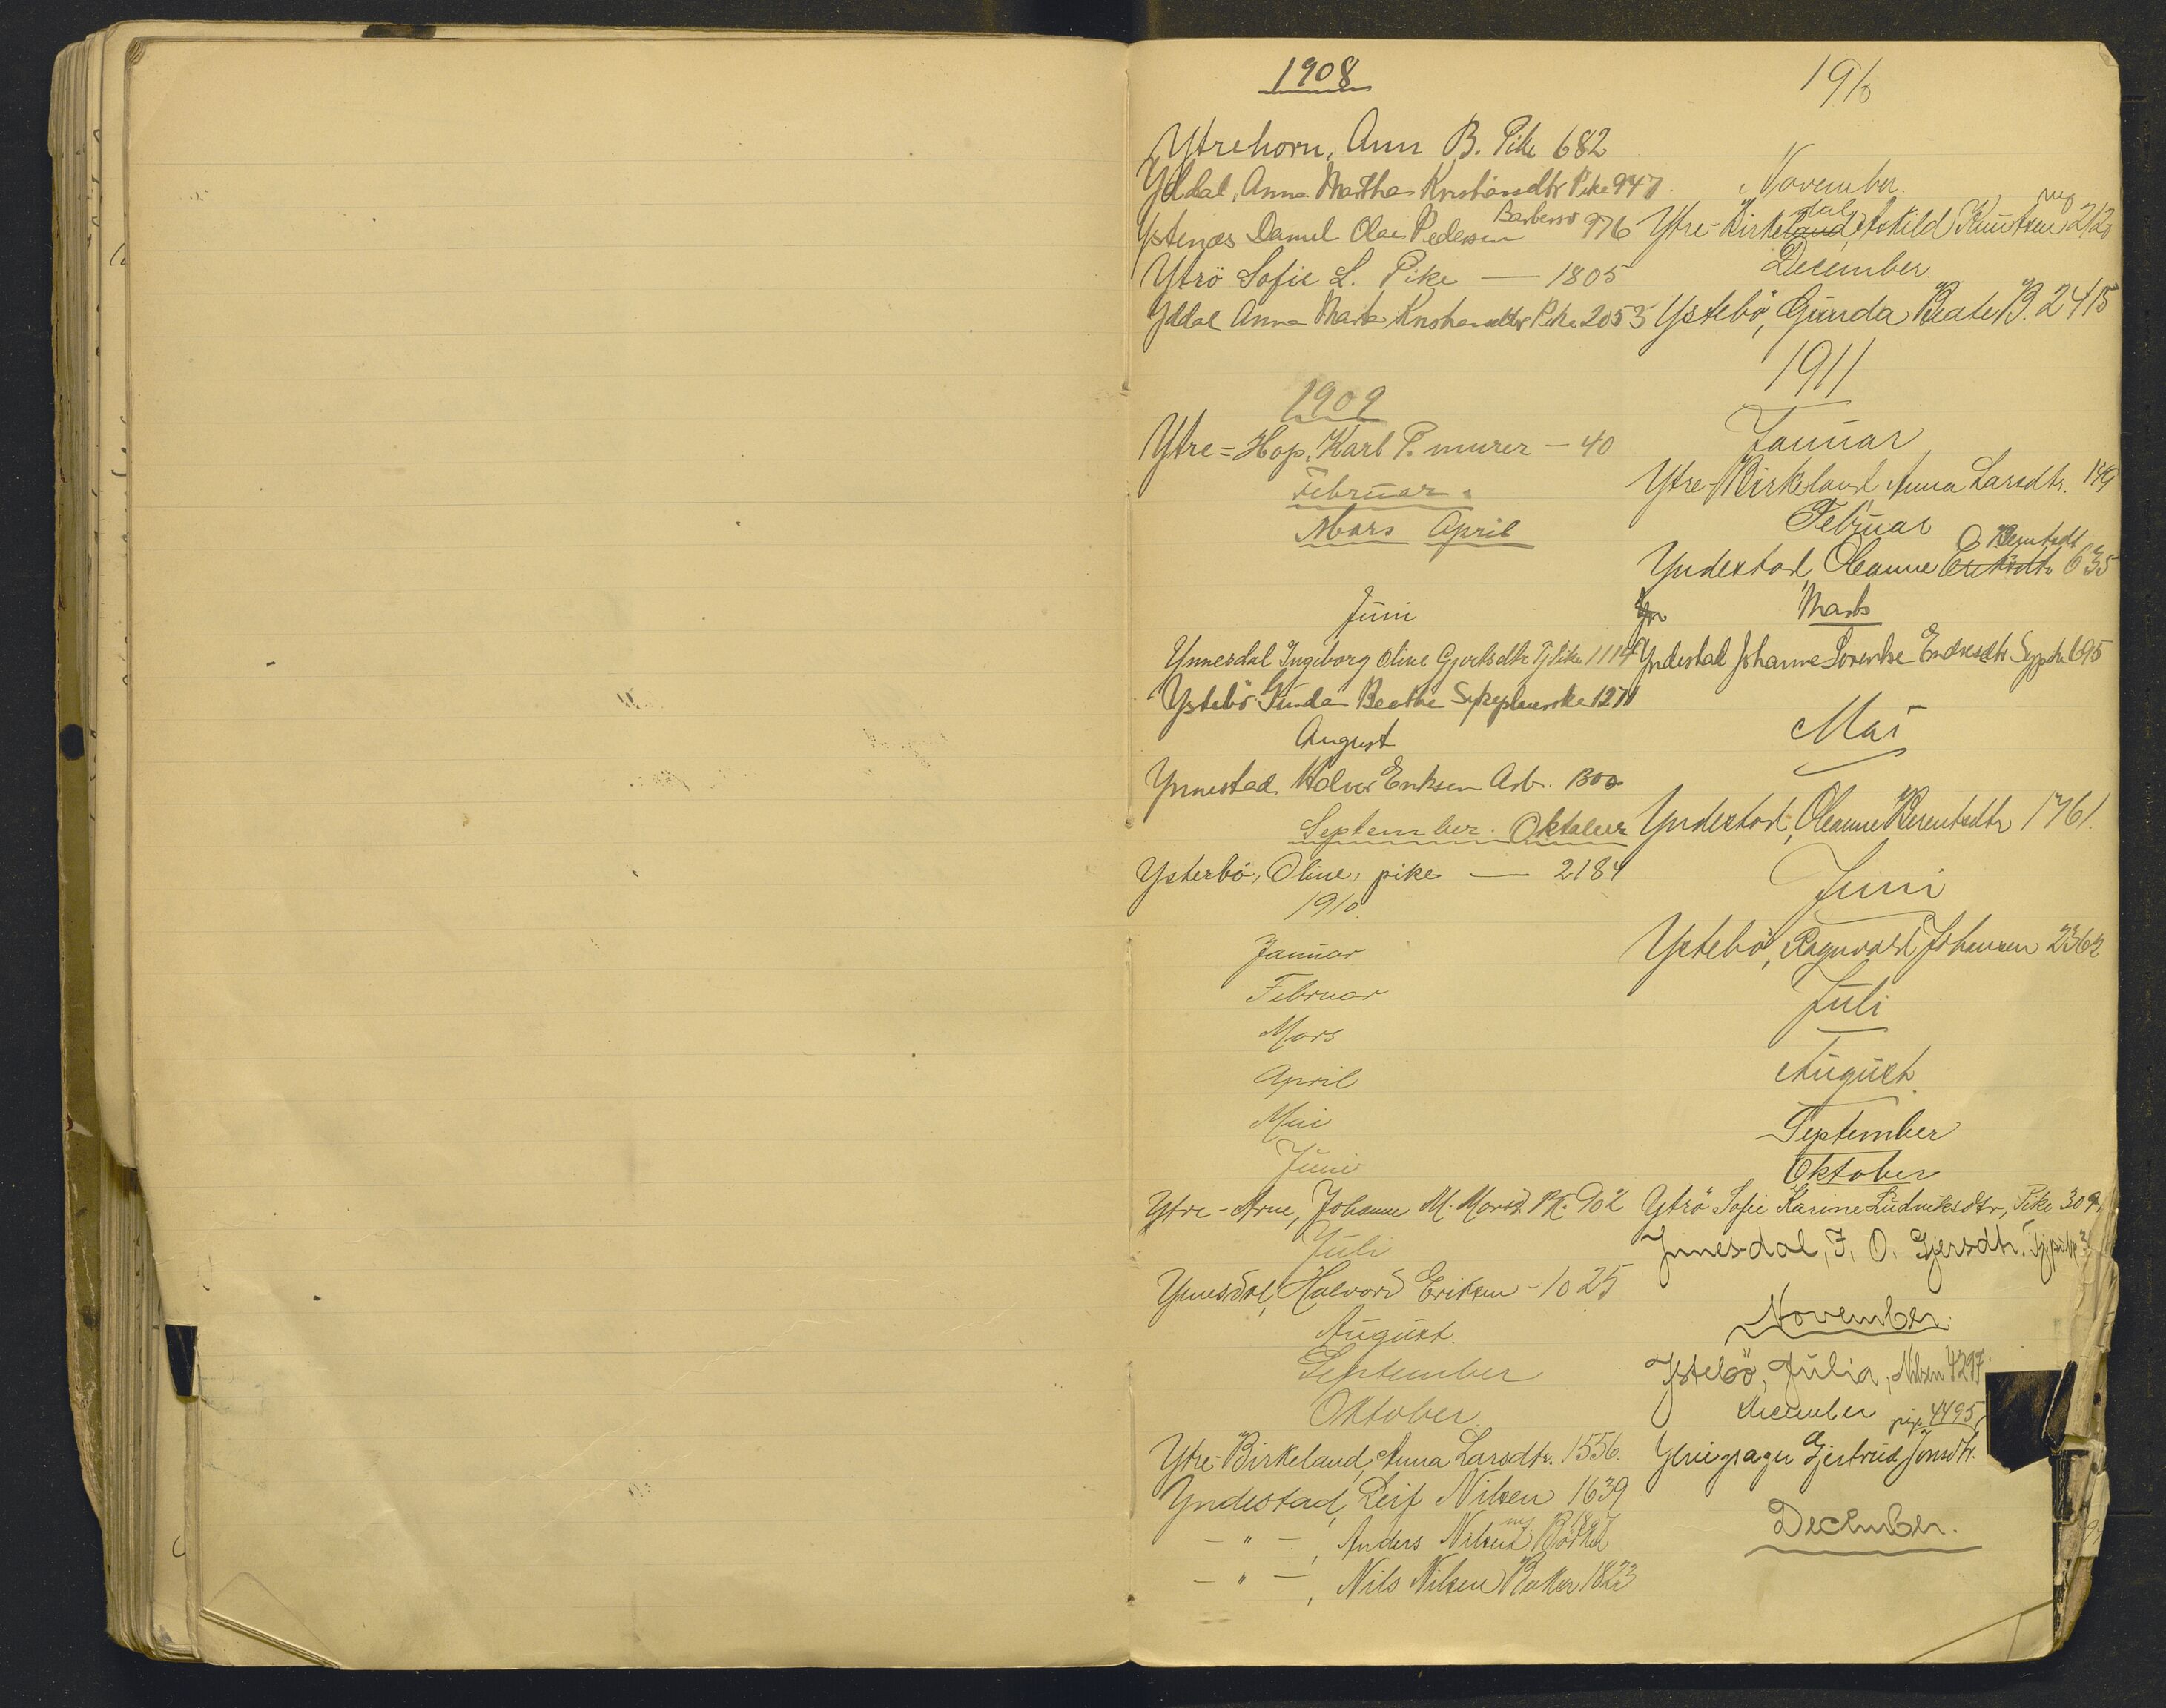 1908
Ytrehorn, Ann B. Pike 682
Yddal, Anna Martha Kristiansdtr Pike 947.
Ystenæs Daniel Olai Pedersen Barberer 976
Ytrö Sofie L. Pike — 1805
Yddal Anna Marta Kristiansdtr Pike 2053
1909
Ytre=Hop, Karl P. murer — 40
Februar.
Mars April
Juni
Ynnesdal Ingeborg Oline Gjertsdtr Tj Pike 1114
Ystebö Gunda Beathe Sykepleierske 1271
August
Ynnestad Halvor Eriksen Arb. 1300
September. Oktober
Ysterbö, Oline, pike — 2184
1910.
Januar
Februar
Mars
April
Mai
Juni
Ytre-Arne, Johanne M. Monsd. Pk. 902
Juli
Ynnesdal, Halvord Eriksen - 1025
August.
September
Oktober.
Ytre-Birkeland, Anna Larsdtr. 1556.
Yndestad, Leif Nilsen 1639
— " —, Anders Nilsen
— " —, Nils Nilsen 1823
1910
November.
Ytre-Birkeland dal, Askild Knutsen 2120
December.
Ystebö, Gunda Beate B. 2415
1911
Januar
Ytre-Birkeland Anna Larsdtr. 149
Februar
Yndestad, Oleanne Eriksdtr Berntsdt 635
Yn
Marts
Yndestad Johanne Lovise Endresdtr 695
Mai
Yndestad, Oleanne Berentsdtr 1761.
Juni
Ystebö, Ragnvald Johansen 2362
Juli
August.
September
Oktober
Ytrö Sofie Karine Ludviksdtr, Pike 309
Ynnesdal, I. O. Gjersdtr. Tj.pike 3
November.
Ystebö, Julia, Nilsen 4297.
December pige 4495
Gjertrud Jonsdtr.
December.